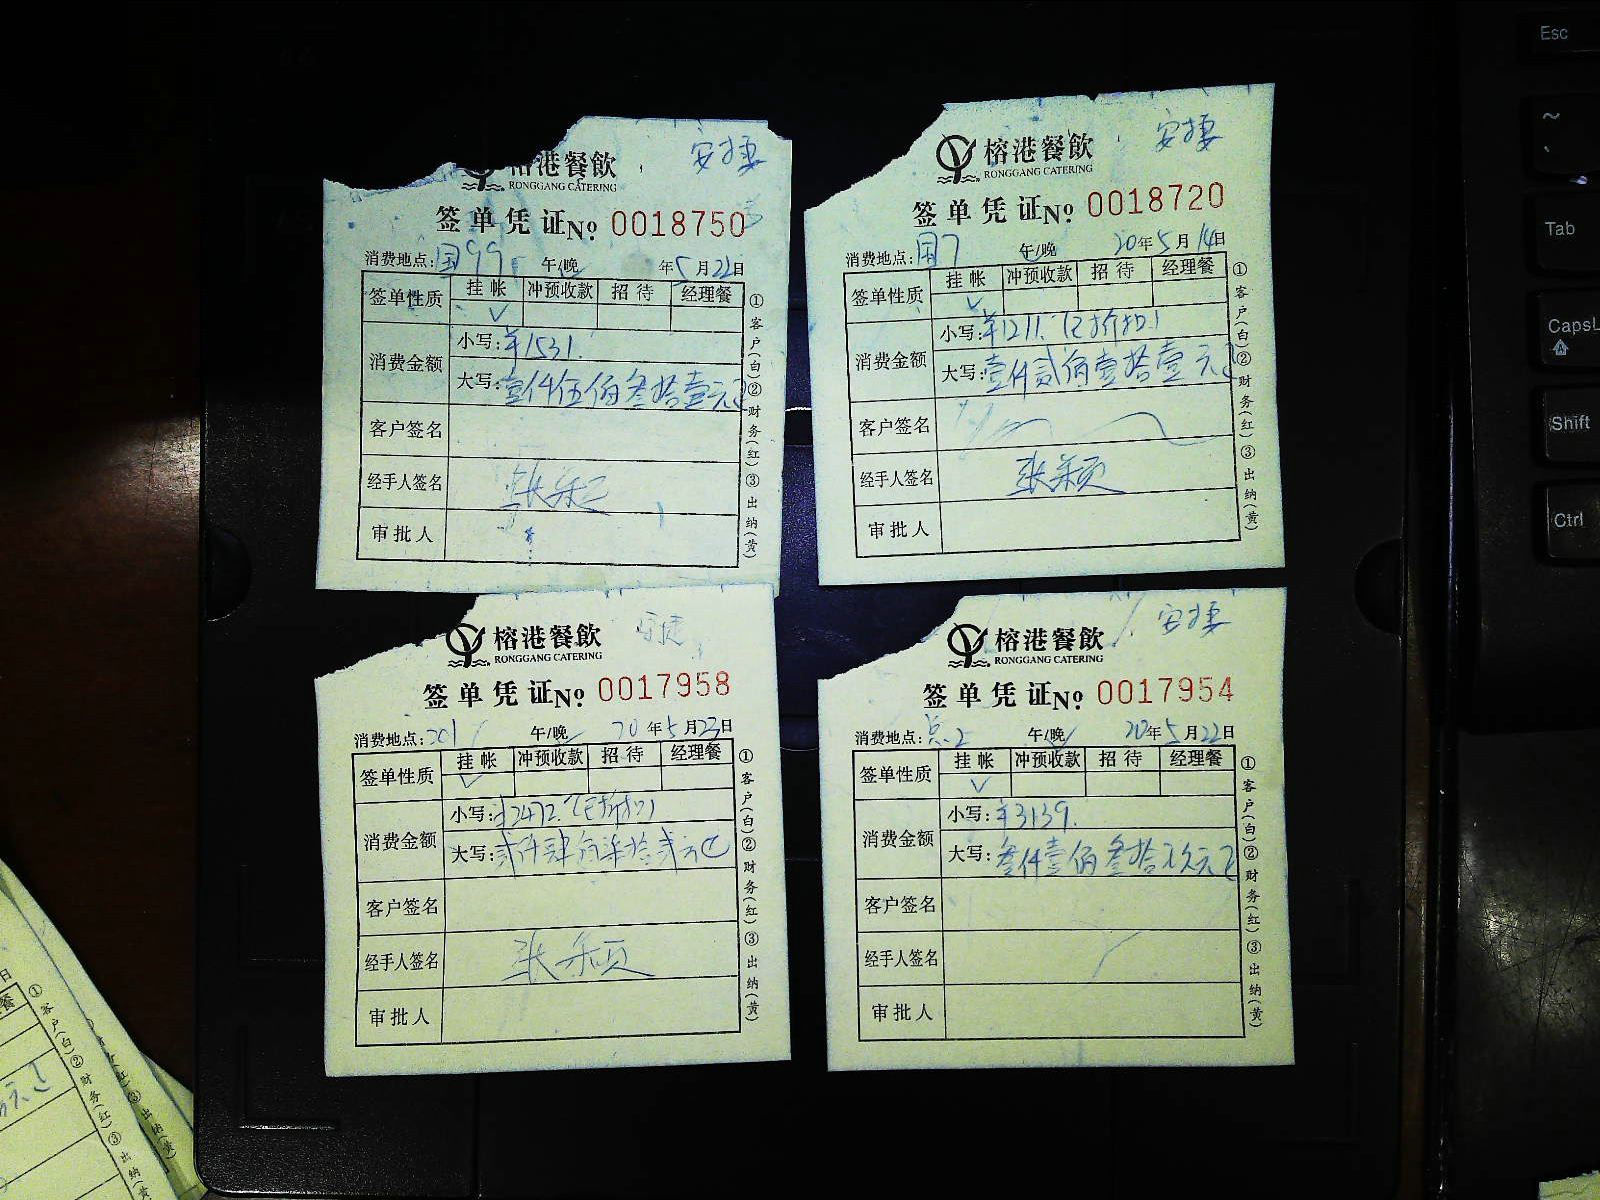 安捷
榕港餐飲
RONGGANG CATERING
签单凭证No 0018750
消费地点: 国99 午/晚 年5月22日
签单性质 挂帐 冲预收款 招待 经理餐
✓
消费金额 小写:¥1531.
大写:壹仟伍佰叁拾壹元正
客户签名
经手人签名
审批人
①客户(白)②财务(红)③出纳(黄)
安捷
榕港餐飲
RONGGANG CATERING
签单凭证No 0018720
消费地点: 国7 午/晚 20年5月14日
签单性质 挂帐 冲预收款 招待 经理餐
✓
消费金额 小写:¥1211.(已折扣)
大写:壹仟贰佰壹拾壹元正
客户签名
经手人签名 张颖
审批人
①客户(白)②财务(红)③出纳(黄)
安捷
榕港餐飲
RONGGANG CATERING
签单凭证No 0017958
消费地点: 201 午/晚 20年5月23日
签单性质 挂帐 冲预收款 招待 经理餐
✓
消费金额 小写:¥2472.(已折扣)
大写:贰仟肆佰柒拾贰元正
客户签名
经手人签名 张颖
审批人
①客户(白)②财务(红)③出纳(黄)
安捷
榕港餐飲
RONGGANG CATERING
签单凭证No 0017954
消费地点: 午/晚 20年5月22日
签单性质 挂帐 冲预收款 招待 经理餐
✓
消费金额 小写:¥3139.
大写:叁仟壹佰叁拾玖元正
客户签名
经手人签名
审批人
①客户(白)②财务(红)③出纳(黄)
日
餐
元正
①客户(白)②财务(红)③出纳(黄)
③出纳(黄)
Esc
~
Tab
CapsL
Shift
Ctrl